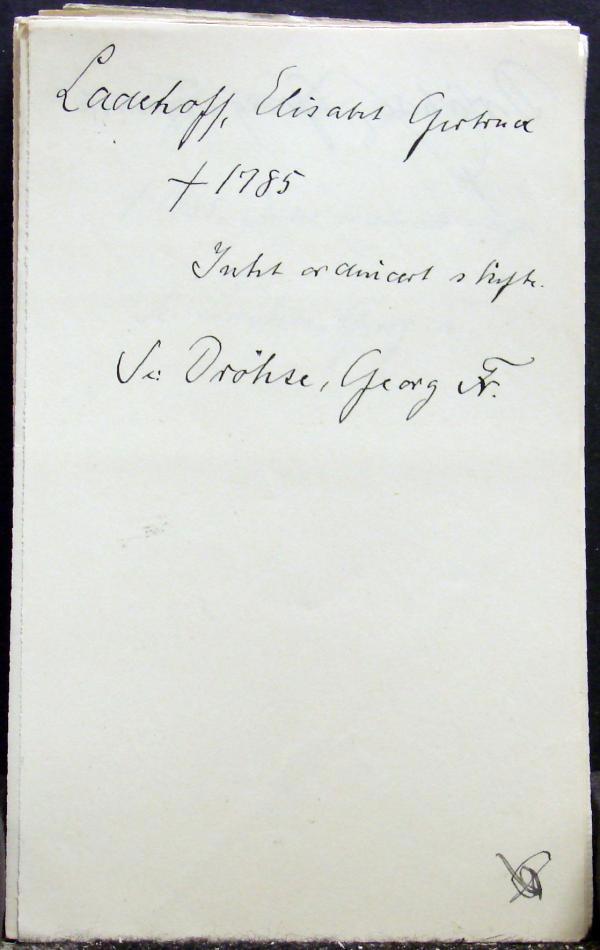 Ladehoff, Elisabet Gertrud
† 1785
Intet ordinært skifte.
Se: Dröhse, Georg Fr.